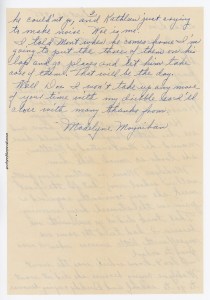 2
he couldn't go, and Kathleen just crying
to make noise. Woe is me!
I told Mont when he comes home I'm
going to put the three of them in his
lap and go places and let him take
care of them. That will be the day.
Well Don I won't take up any more
of your time with my bibble so I'll
close with many thanks from.
Madelyne Moynihan